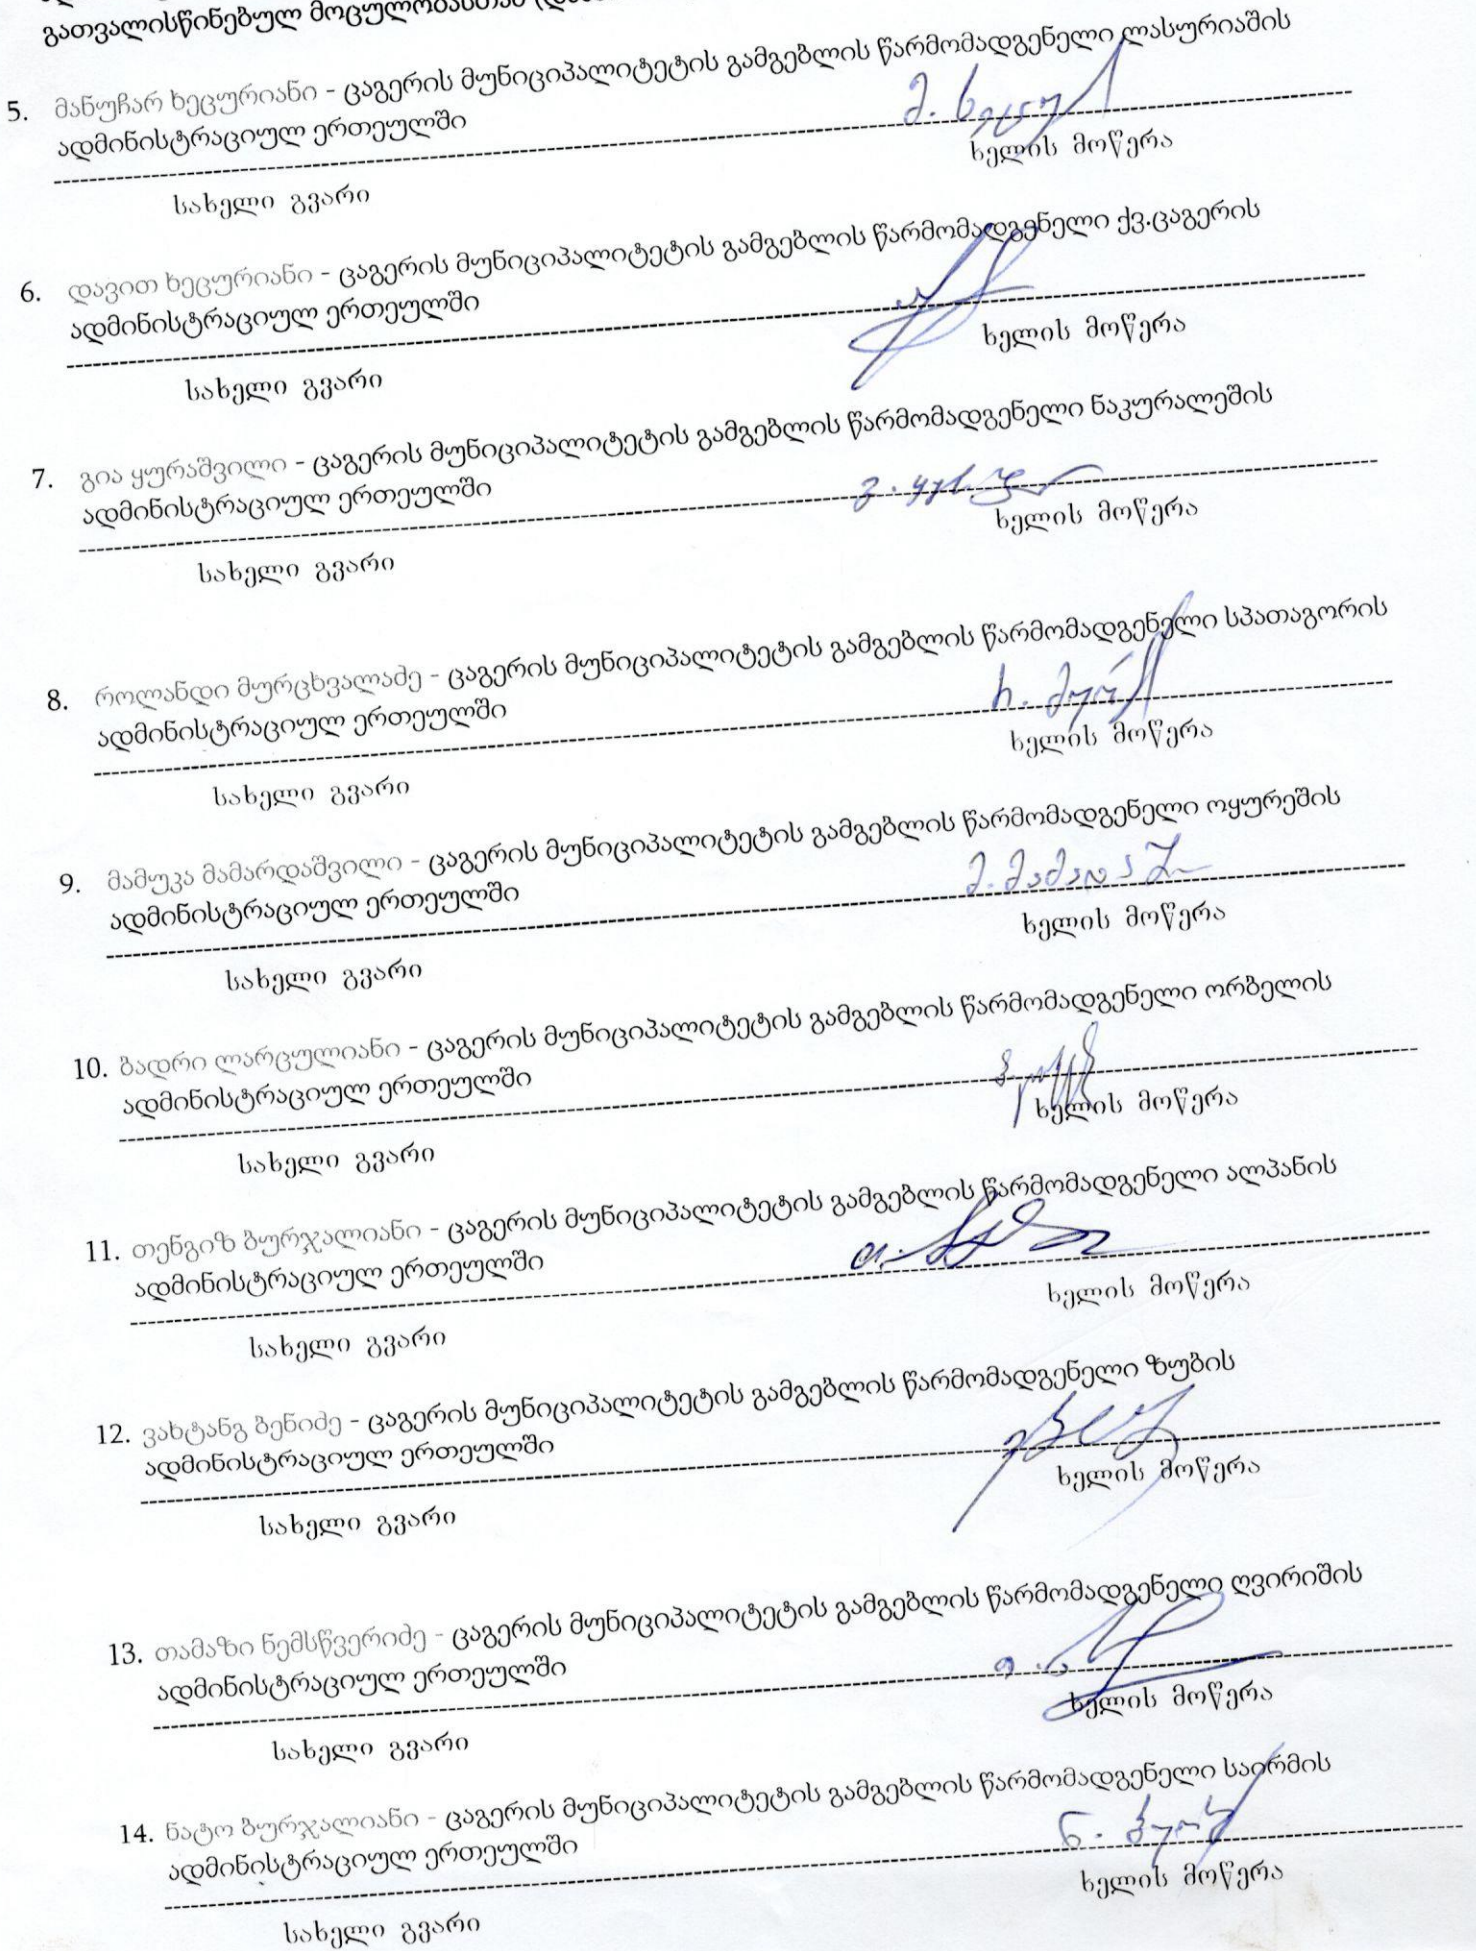 გათვალისწინებულ მოცულობასთან
5. მანუჩარ ხეცურიანი - ცაგერის მუნიციპალიტეტის გამგებლის წარმომადგენელი ლასურიაშის
ადმინისტრაციულ ერთეულში
მ. ხეცურ
ხელის მოწერა
სახელი გვარი
6. დავით ხეცურიანი - ცაგერის მუნიციპალიტეტის გამგებლის წარმომადგენელი ქვ.ცაგერის
ადმინისტრაციულ ერთეულში
ხელის მოწერა
სახელი გვარი
7. გია ყურაშვილი - ცაგერის მუნიციპალიტეტის გამგებლის წარმომადგენელი ნაკურალეშის
ადმინისტრაციულ ერთეულში
ხელის მოწერა
სახელი გვარი
8. როლანდი მურცხვალაძე - ცაგერის მუნიციპალიტეტის გამგებლის წარმომადგენელი სპათაგორის
ადმინისტრაციულ ერთეულში
რ. მურ
ხელის მოწერა
სახელი გვარი
9. მამუკა მამარდაშვილი - ცაგერის მუნიციპალიტეტის გამგებლის წარმომადგენელი ოყურეშის
ადმინისტრაციულ ერთეულში
ხელის მოწერა
სახელი გვარი
10. ბადრი ლარცულიანი - ცაგერის მუნიციპალიტეტის გამგებლის წარმომადგენელი ორბელის
ადმინისტრაციულ ერთეულში
ხელის მოწერა
სახელი გვარი
11. თენგიზ ბურჯალიანი - ცაგერის მუნიციპალიტეტის გამგებლის წარმომადგენელი ალპანის
ადმინისტრაციულ ერთეულში
ხელის მოწერა
სახელი გვარი
12. ვახტანგ ბენიძე - ცაგერის მუნიციპალიტეტის გამგებლის წარმომადგენელი ზუბის
ადმინისტრაციულ ერთეულში
ხელის მოწერა
სახელი გვარი
13. თამაზი ნემსწვერიძე - ცაგერის მუნიციპალიტეტის გამგებლის წარმომადგენელი ღვირიშის
ადმინისტრაციულ ერთეულში
ხელის მოწერა
სახელი გვარი
14. ნატო ბურჯალიანი - ცაგერის მუნიციპალიტეტის გამგებლის წარმომადგენელი საირმის
ადმინისტრაციულ ერთეულში
ნ. ბურჯ
ხელის მოწერა
სახელი გვარი